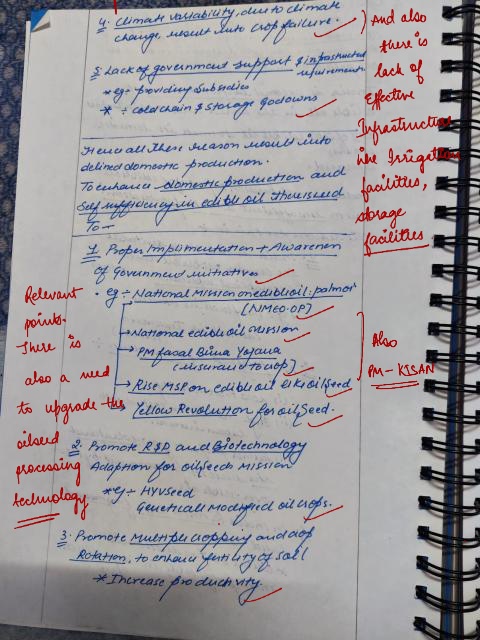 4. Climate variability, due to climate
change, result into crop failure.
5. Lack of government support & infrastructural
requirement
* eg ÷ providing subsidies
* ÷ cold chain & storage godowns
And also
there is
lack of
Effective
Infrastructure
like Irrigation
facilities,
storage
facilities
Hence all these reason result into
domestic production.
To enhance domestic production and
Self sufficiency in edible oil there is need
To -
1. Proper Implimentation + Awareness
of Government initiatives
• eg ÷ National Mission on edible oil : palm oil
[NMEO-OP]
→ National edible oil mission
→ PM fasal Bima Yojana
(insurance to crop)
→ Rise MSP on edible oil & Oil Seed
→ Yellow Revolution for oil Seed.
Also
PM - KISAN
Relevant
points.
There is
also a need
to upgrade the
oilseed
processing
technology
2. Promote R&D and Biotechnology
Adaption for oil seeds Mission
* eg ÷ HYV seed
Genetically Modified oil crops.
3. Promote Multiple cropping and crop
Rotation, to enhance fertility of soil
* Increase productivity.